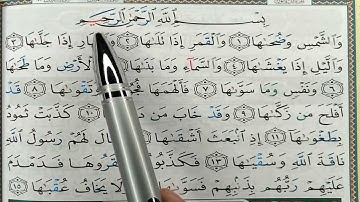 بِسْمِ اللَّهِ الرَّحْمَٰنِ الرَّحِيمِ
وَالشَّمْسِ وَضُحَىٰهَا ١ وَالْقَمَرِ إِذَا تَلَىٰهَا ٢ وَالنَّهَارِ إِذَا جَلَّىٰهَا ٣
وَالَّيْلِ إِذَا يَغْشَىٰهَا ٤ وَالسَّمَآءِ وَمَا بَنَىٰهَا ٥ وَالْأَرْضِ وَمَا طَحَىٰهَا
٦ وَنَفْسٍ وَمَا سَوَّىٰهَا ٧ فَأَلْهَمَهَا فُجُورَهَا وَتَقْوَىٰهَا ٨ قَدْ
أَفْلَحَ مَن زَكَّىٰهَا ٩ وَقَدْ خَابَ مَن دَسَّىٰهَا ١٠ كَذَّبَتْ ثَمُودُ
بِطَغْوَىٰهَآ ١١ إِذِ انۢبَعَثَ أَشْقَىٰهَا ١٢ فَقَالَ لَهُمْ رَسُولُ اللَّهِ
نَاقَةَ اللَّهِ وَسُقْيَٰهَا ١٣ فَكَذَّبُوهُ فَعَقَرُوهَا فَدَمْدَمَ
عَلَيْهِمْ رَبُّهُم بِذَنۢبِهِمْ فَسَوَّىٰهَا ١٤ وَلَا يَخَافُ عُقْبَٰهَا ١٥